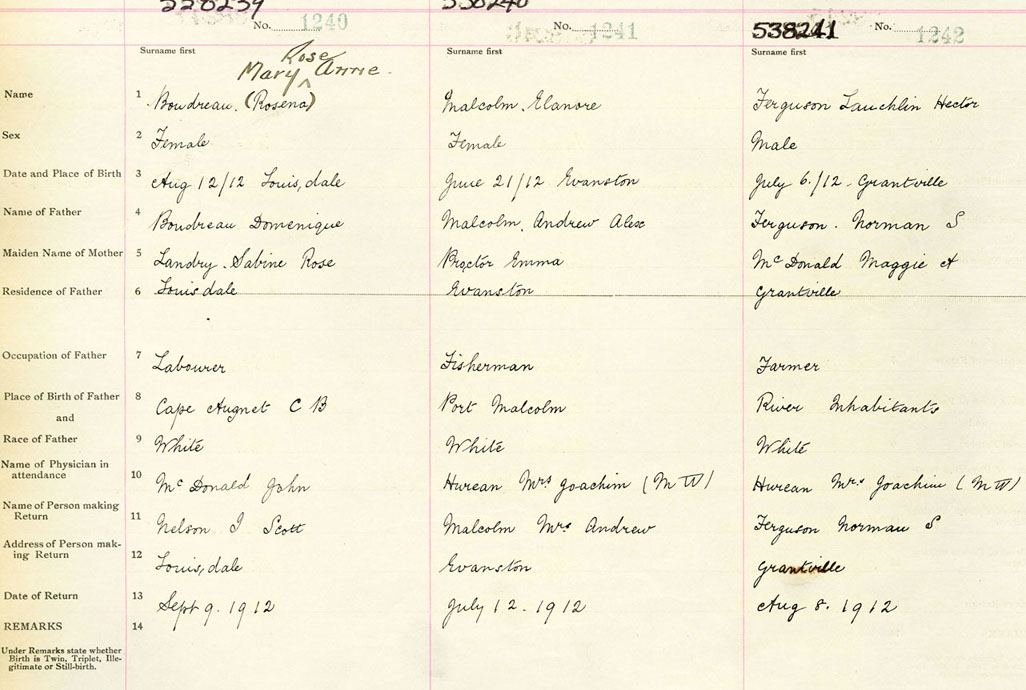 538239 538240 538241
No. 1240 No. 1241 No. 1242
Surname first Surname first Surname first
Rose
Mary ^ Annie.
Name 1 Boudreau. (Rosena) Malcolm. Elanore Ferguson Lauchlin Hector
Sex 2 Female Female Male
Date and Place of Birth 3 Aug 12/12 Louisdale June 21/12 Evanston July 6./12 - Grantville
Name of Father 4 Boudreau Domenique Malcolm, Andrew Alex Ferguson. Norman S
Maiden Name of Mother 5 Landry. Sabine Rose Proctor Emma McDonald Maggie A
Residence of Father 6 Louisdale Evanston Grantville
Occupation of Father 7 Labourer Fisherman Farmer
Place of Birth of Father 8 Cape Auguet C B Port Malcolm River Inhabitants
and
Race of Father 9 White White White
Name of Physician in
attendance 10 McDonald John Hurean Mrs Joachim (M W) Hurean Mrs. Joachim (M W)
Name of Person making
Return 11 Nelson I Scott Malcolm Mrs Andrew Ferguson Norman S
Address of Person mak-
ing Return 12 Louisdale Evanston Grantville
Date of Return 13 Sept 9. 1912 July 12. 1912 Aug 8. 1912
REMARKS 14
Under Remarks state whether
Birth is Twin, Triplet, Ille-
gitimate or Still-birth.